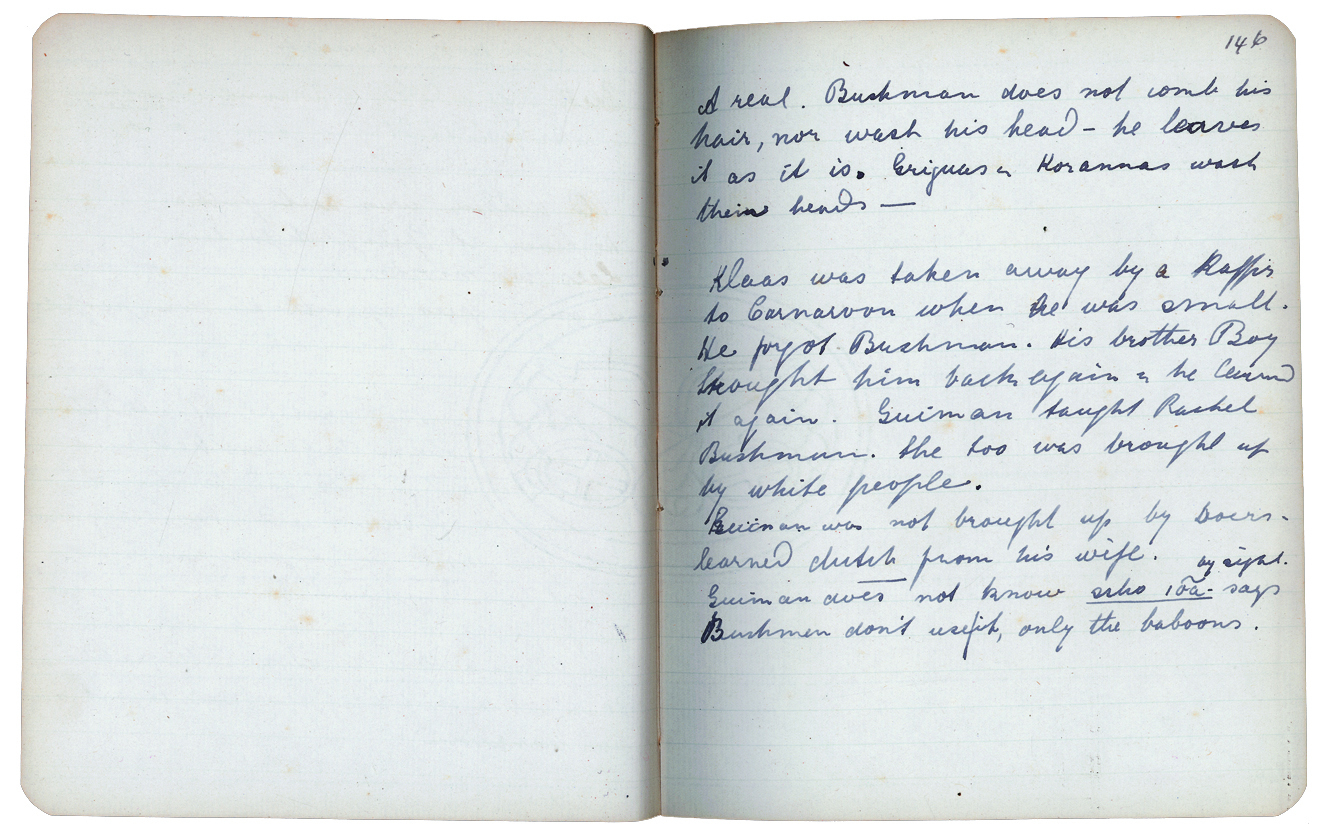 146
A real. Bushman does not comb his
hair, nor wash his head – he leaves
it as it is. Griquas & Korannas wash
their heads —
Klaas was taken away by a Kaffir
to Carnarvon when he was small.
He forgot Bushman. His brother Boy
brought him back again & he learned
it again. Guiman taught Rachel
Bushman. She too was brought up
by white people.
Guiman was not brought up by Boers -
learned dutch from his wife.
by sight.
Guiman does not know - says
Bushmen don't use it, only the baboons.